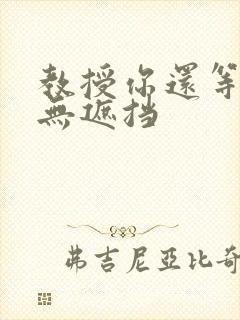 教授你還等
無遮挡
弗吉尼亞比奇